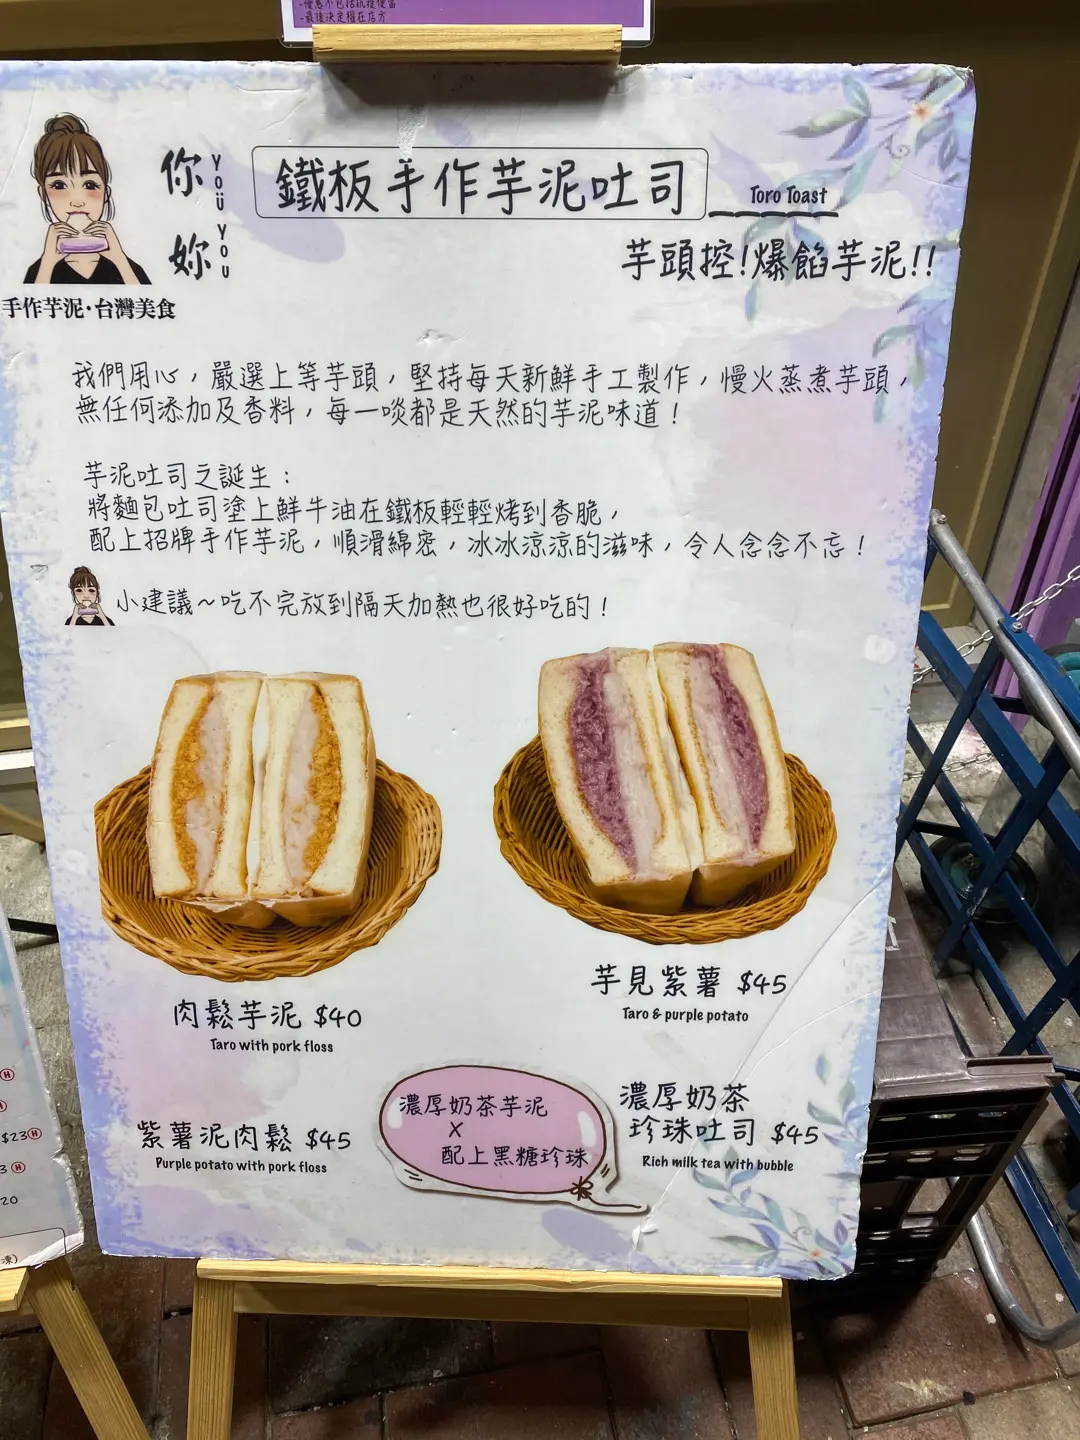 -最後決定權在店方
你妳
YOÜ YOU
手作芋泥·台灣美食
鐵板手作芋泥吐司
Toro Toast
芋頭控!爆餡芋泥!!
我們用心，嚴選上等芋頭，堅持每天新鮮手工製作，慢火蒸煮芋頭，
無任何添加及香料，每一啖都是天然的芋泥味道！
芋泥吐司之誕生：
將麵包吐司塗上鮮牛油在鐵板輕輕烤到香脆，
配上招牌手作芋泥，順滑綿密，冰冰涼涼的滋味，令人念念不忘！
小建議～吃不完放到隔天加熱也很好吃的！
肉鬆芋泥 $40
Taro with pork floss
芋見紫薯 $45
Taro & purple potato
紫薯泥肉鬆 $45
Purple potato with pork floss
濃厚奶茶芋泥
X
配上黑糖珍珠
濃厚奶茶
珍珠吐司 $45
Rich milk tea with bubble
H
$23 H
H
20
凍)